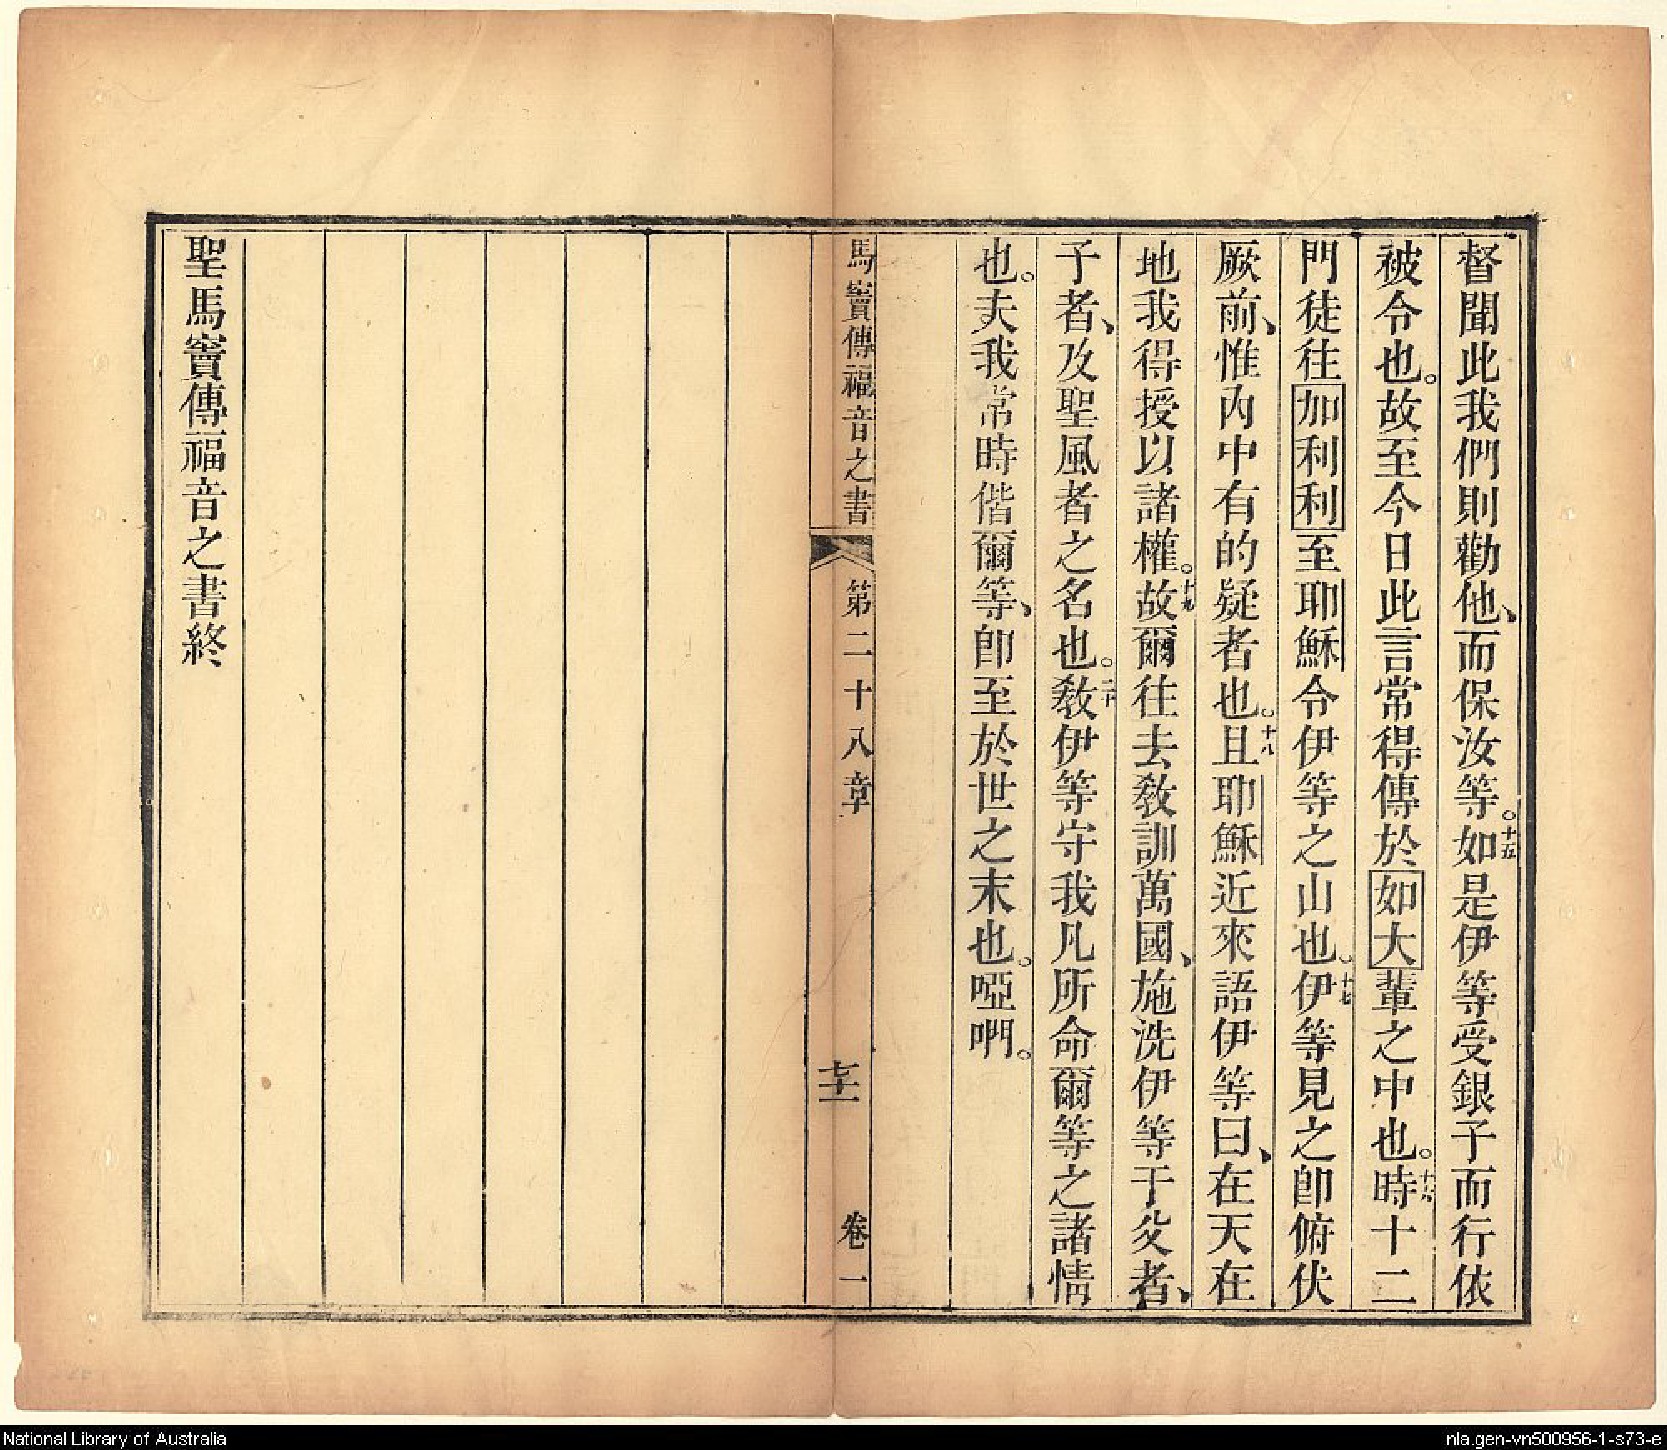 督聞此我們則勸他、而保汝等。十五如是伊等受銀子而行依
被令也。故至今日此言常得傳於如大輩之中也。十六時十二
門徒往加利利至耶穌令伊等之山也。十七伊等見之即俯伏
厥前、惟內中有的疑者也。十八且耶穌近來語伊等曰、在天在
地我得授以諸權。十九故爾往去教訓萬國、施洗伊等于父者、
子者、及聖風者之名也。二十教伊等守我凡所命爾等之諸情
也。夫我常時偕爾等、即至於世之末也。啞啊。
馬竇傳福音之書 第二十八章 卷一
聖馬竇傳福音之書終
National Library of Australia
nla.gen-vn500956-1-s73-e